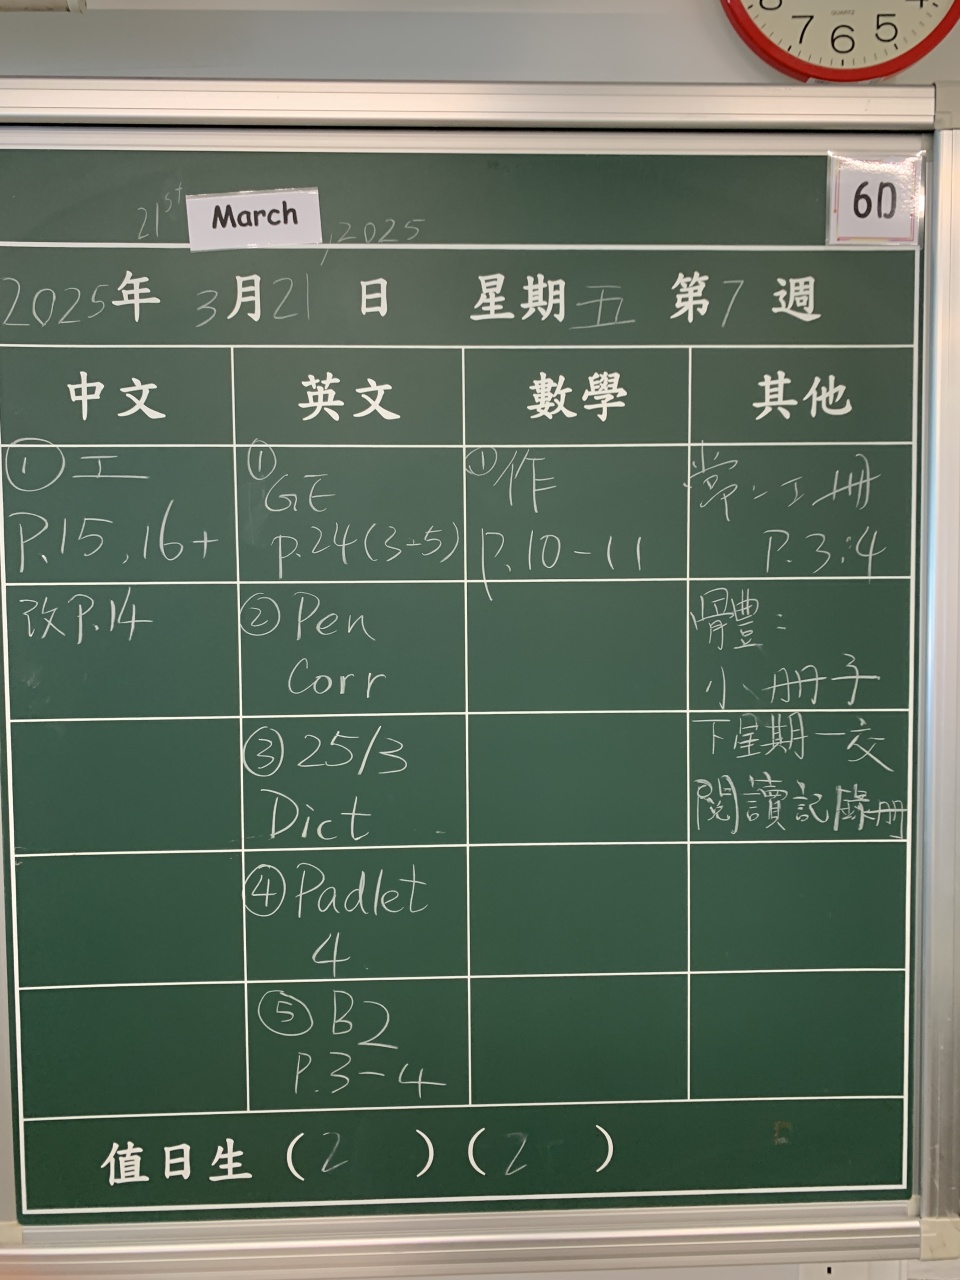 8
7 6 5 4
QUARTZ
21st March, 2025
6D
2025年 3月21日 星期五 第7週
中文
英文
數學
其他
① 工
P.15,16+
改P.14
① GE
p.24(3-5)
② Pen
Corr
③ 25/3
Dict
④ Padlet
4
⑤ B2
P.3-4
① 作
p.10-11
常:工冊
P.3;4
體:
小冊子
下星期一交
閱讀記錄冊
值日生(2)(2)